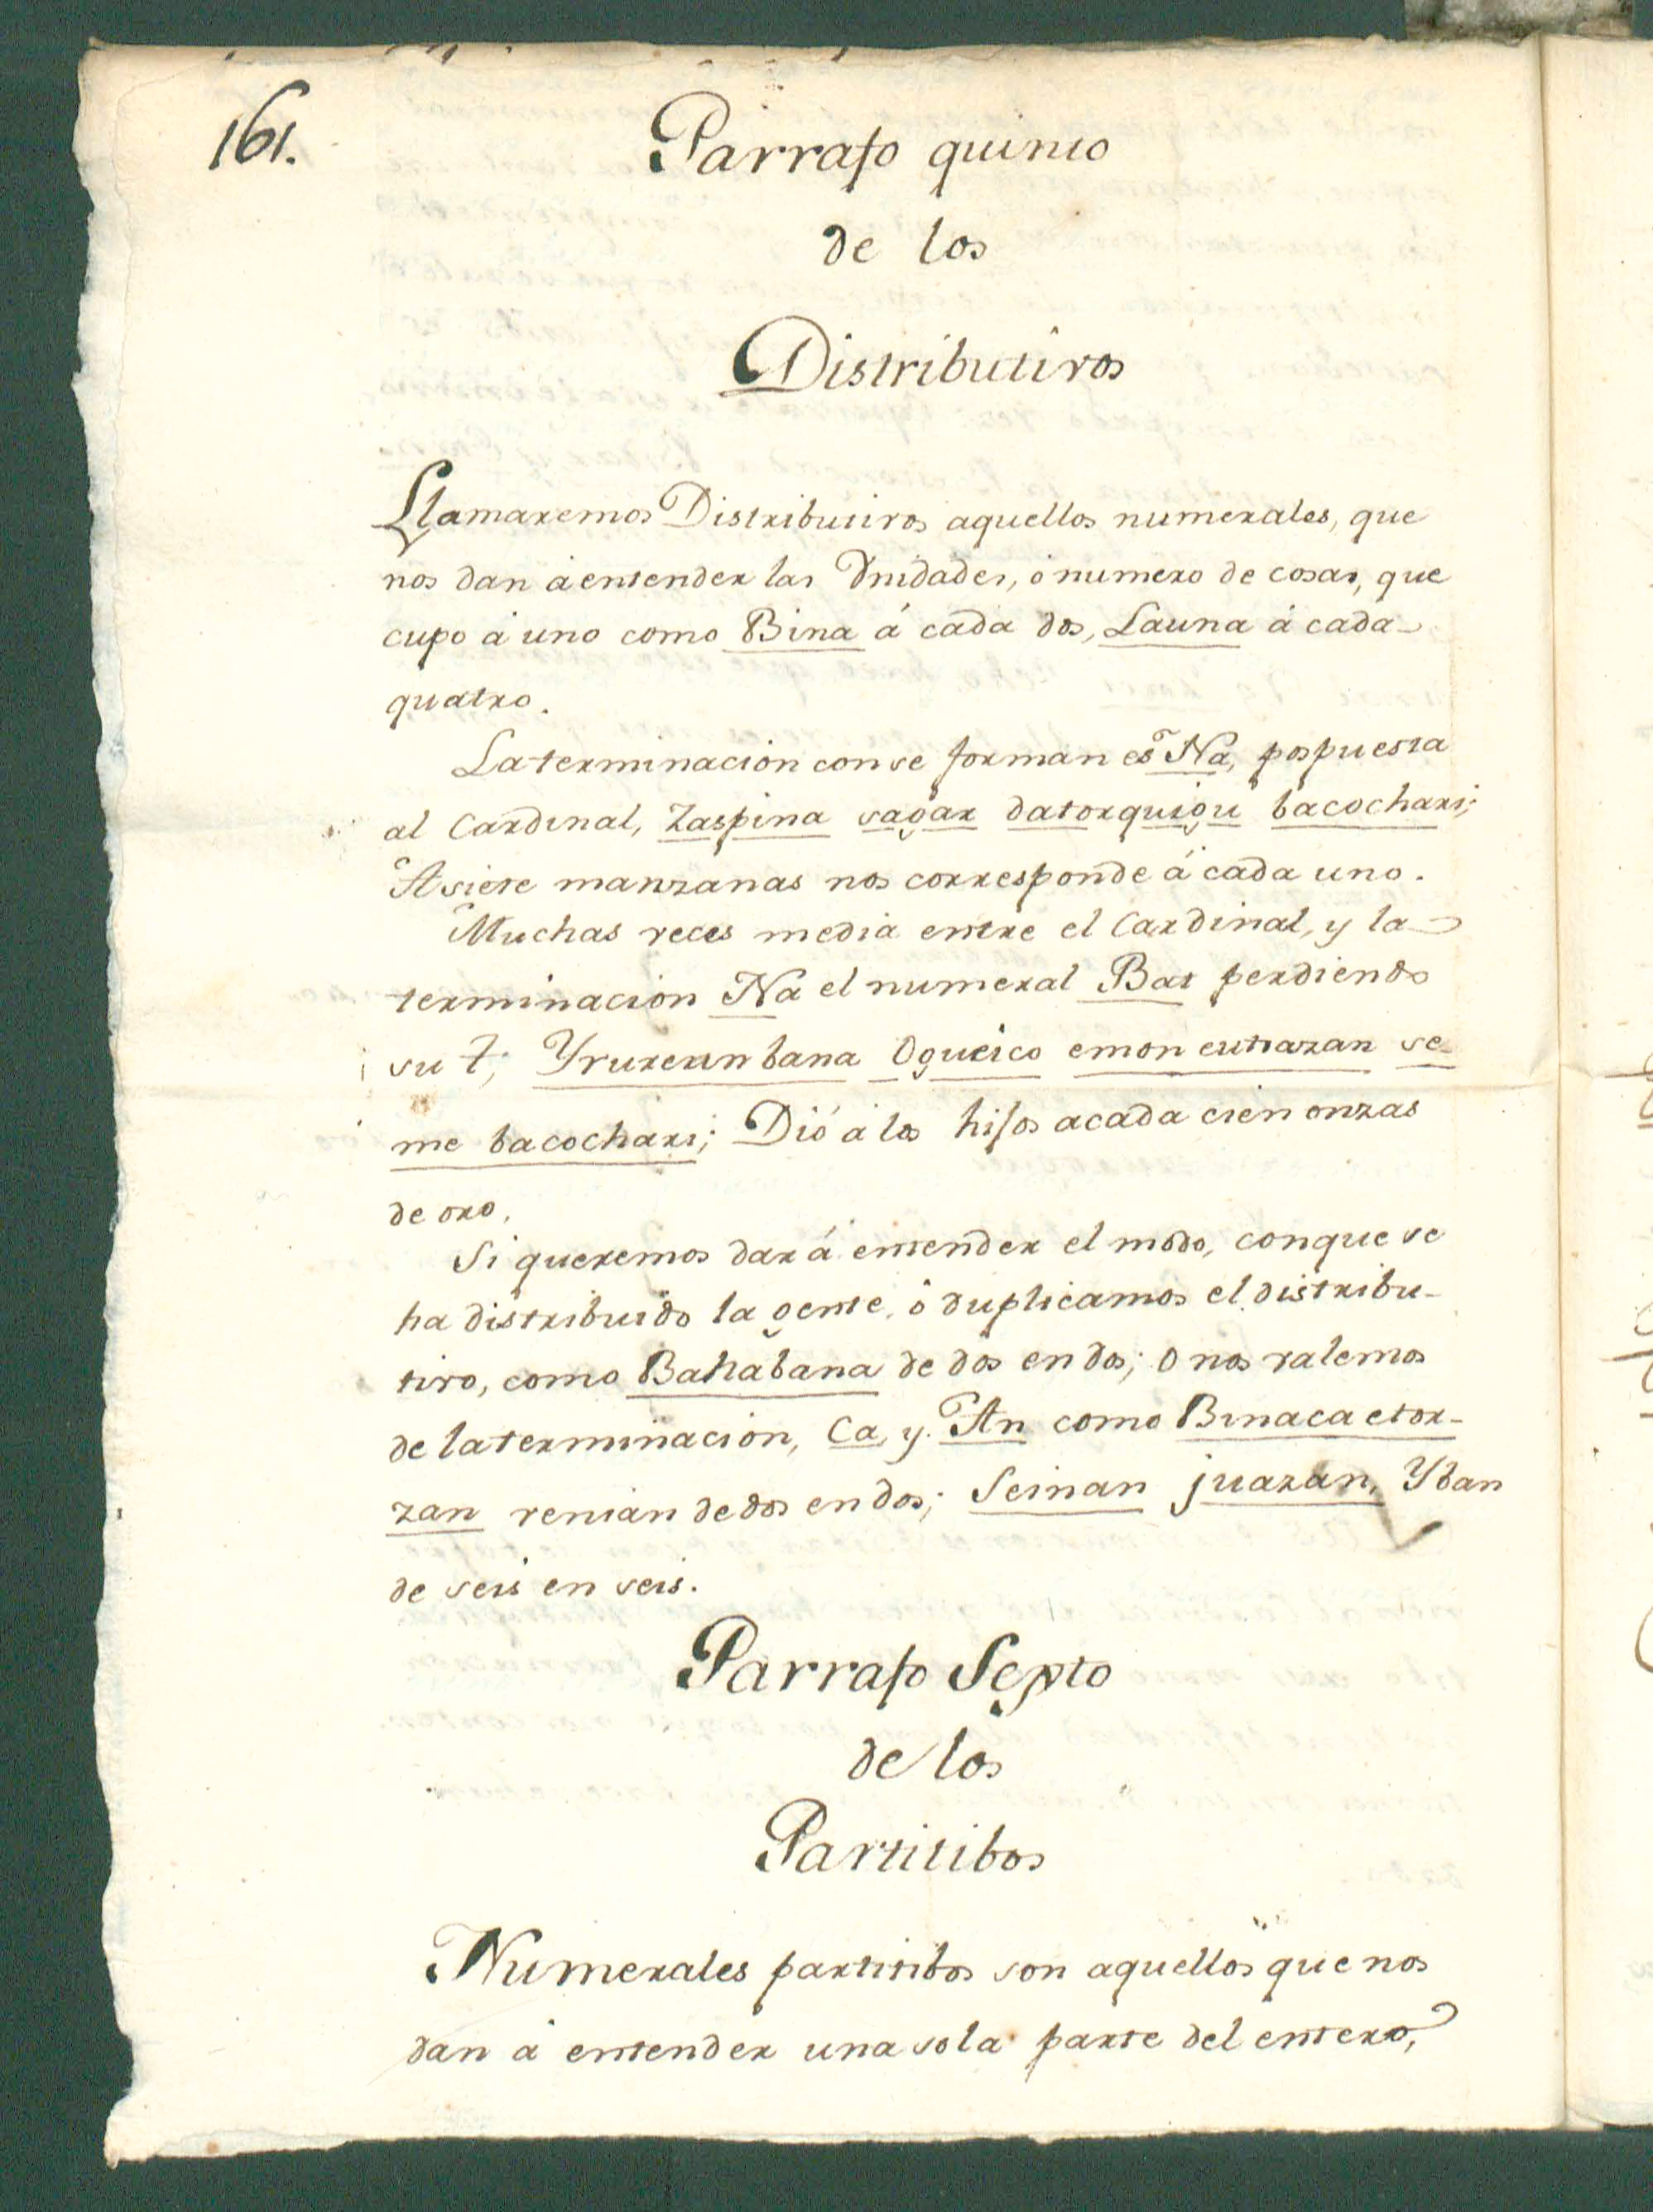 161.
Parrafo quinto
de los
Distributivos
Llamaremos Distributivos aquellos numerales, que
nos dan á entender las Unidades, ó numero de cosas, que
cupo á uno como Bina á cada dos, Launa á cada
quatro.
La terminacion con se forman es Na, pospuesta
al Cardinal, Zaspina sagar datorquigu bacochari;
A siete manzanas nos corresponde á cada uno.
Muchas veces media entre el Cardinal, y la
terminacion Na el numeral Bat perdiendo
su t; Yrureun bana Ogueico emon eutsazan se-
me bacochari; Dió á los hijos acada cien onzas
de oro.
Si queremos dar á entender el modo, con que se
ha distribuido la gente, ó duplicamos el distribu-
tivo, como Bahabana de dos en dos; O nos valemos
de la terminacion, Ca, y An como Binaca etor-
zan venian de dos en dos; Seinan juazan, Yban
de seis en seis.
Parrafo Septo
de los
Partitibos
Numerales partitibos son aquellos que nos
dan á entender una sola parte del entero,